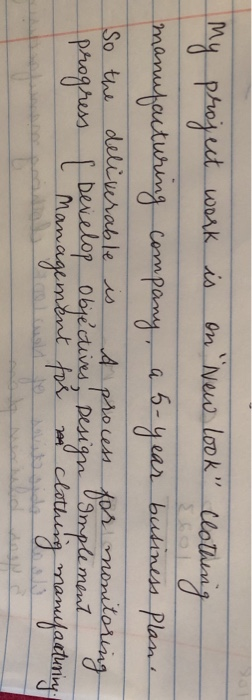 My project work is on "New look" clothing
manufacturing company, a 5-year business plan.
So the deliverable is A process for monitoring
progress ( Develop objectives, Design Implement
Management for clothing manufacturing.